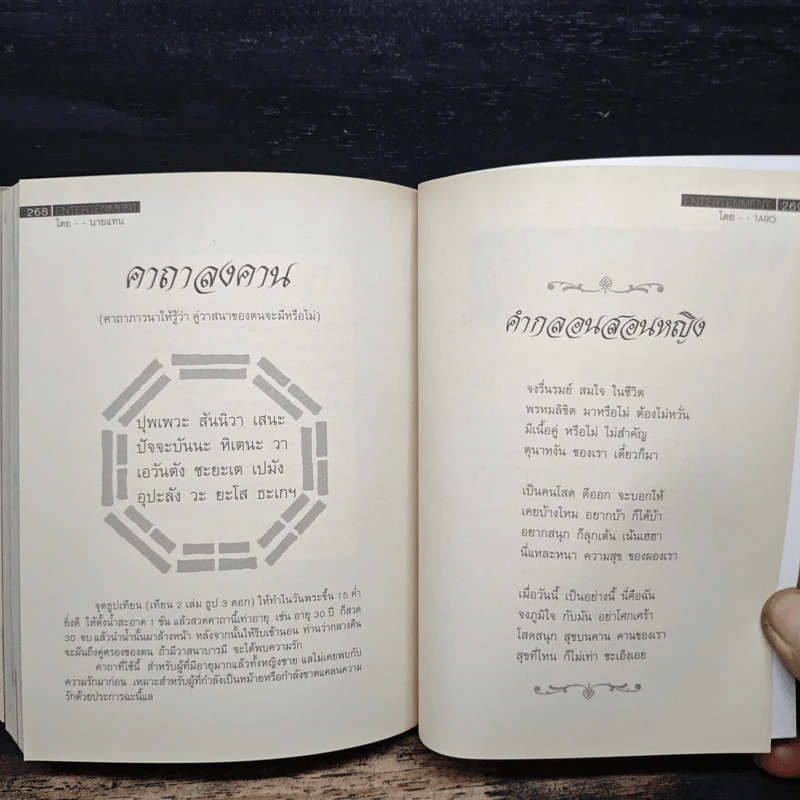 268 ENTERTENMENT
โดย - - นายแทน
คาถาลงคาน
(คาถาภาวนาให้รู้ว่า คู่วาสนาของตนจะมีหรือไม่)
ปุพเพวะ สันนิวา เสนะ
ปัจจะบันนะ หิเตนะ วา
เอวันตัง ชะยะเต เปมัง
อุปะลัง วะ ยะโส ธะเกฯ
จุดธูปเทียน (เทียน 2 เล่ม ธูป 3 ดอก) ให้ทำในวันพระขึ้น 15 ค่ำ
ยิ่งดี ให้ตั้งน้ำสะอาด 1 ขัน แล้วสวดคาถานี้เท่าอายุ เช่น อายุ 30 ปี ก็สวด
30 จบ แล้วนำน้ำนั้นมาล้างหน้า หลังจากนั้นให้รีบเข้านอน ท่านว่ากลางคืน
จะฝันถึงคู่ครองของตน ถ้ามีวาสนาบารมี จะได้พบความรัก
คาถาที่ใช้นี้ สำหรับผู้ที่มีอายุมากแล้วทั้งหญิงชาย แลไม่เคยพบกับ
ความรักมาก่อน เหมาะสำหรับผู้ที่กำลังเป็นหม้ายหรือกำลังขาดแคลนความ
รักด้วยประการฉะนี้แล
ENTERTENMENT 269
โดย - - TARO
คำกลอนสอนหญิง
จงรื่นรมย์ สมใจ ในชีวิต
พรหมลิขิต มาหรือไม่ ต้องไม่หวั่น
มีเนื้อคู่ หรือไม่ ไม่สำคัญ
ตุนาหงัน ของเรา เดี๋ยวก็มา
เป็นคนโสด ดีออก จะบอกให้
เคยบ้างไหม อยากบ้า ก็ได้บ้า
อยากสนุก ก็ลุกเต้น เน้นเฮฮา
นี่แหละหนา ความสุข ของผองเรา
เมื่อวันนี้ เป็นอย่างนี้ นี่คือฉัน
จงภูมิใจ กับมัน อย่าโศกเศร้า
โสดสนุก สุขบนคาน คานของเรา
สุขที่ไหน ก็ไม่เท่า ซะเอิงเอย